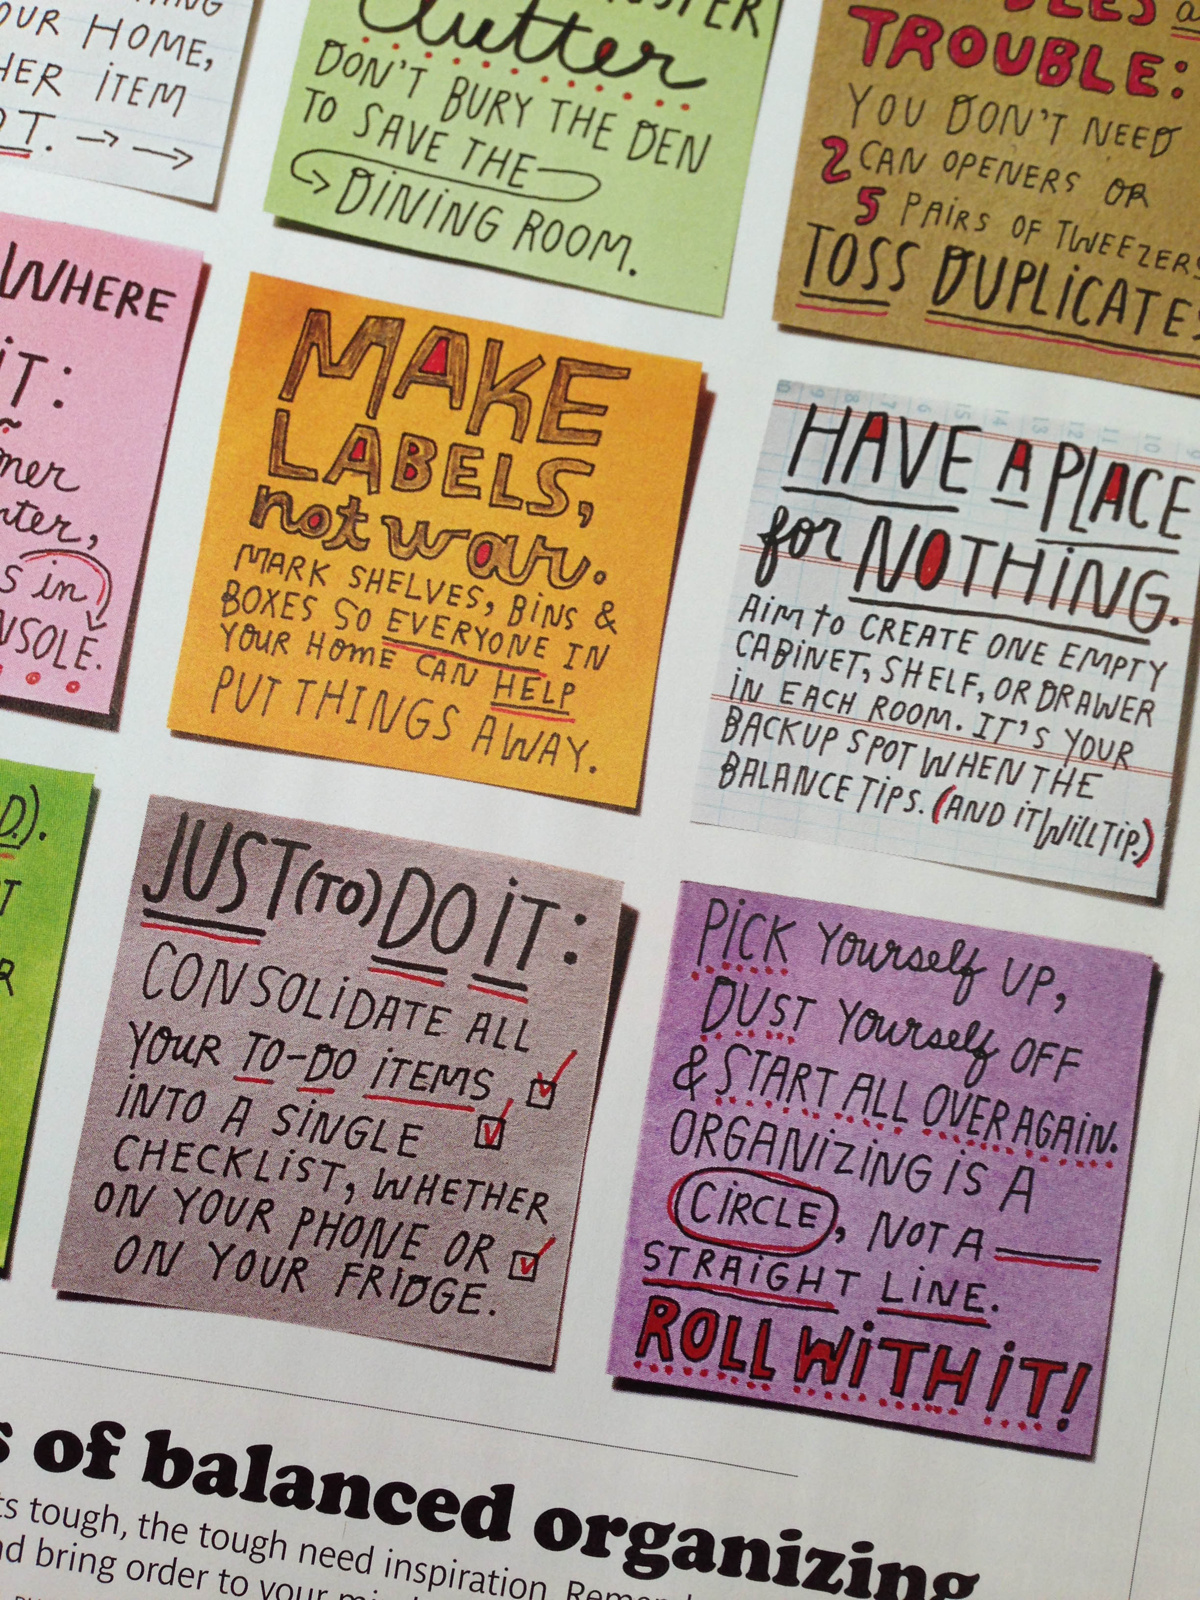 OUR HOME,
ITEM
clutter
DON'T BURY THE DEN
TO SAVE THE
DINING ROOM.
TROUBLE:
YOU DON'T NEED
2 CAN OPENERS OR
5 PAIRS OF TWEEZERS
TOSS DUPLICATES
WHERE
IT:
in
MAKE
LABELS,
not war.
MARK SHELVES, BINS &
BOXES SO EVERYONE IN
YOUR HOME CAN HELP
PUT THINGS AWAY.
HAVE A PLACE
for NOTHING.
AIM to CREATE ONE EMPTY
CABINET, SHELF, OR DRAWER
IN EACH ROOM. IT'S YOUR
BACKUP SPOT WHEN THE
BALANCE TIPS. (AND IT WILL TIP.)
JUST (TO) DO IT:
CONSOLIDATE ALL
YOUR TO-DO ITEMS
INTO A SINGLE
CHECKLIST, WHETHER
ON YOUR PHONE OR
ON YOUR FRIDGE.
PICK Yourself UP,
DUST Yourself OFF
& START ALL OVER AGAIN.
ORGANIZING IS A
CIRCLE, NOT A
STRAIGHT LINE.
ROLL WITH IT!
of balanced organizing
tough, the tough need inspiration.
bring order to your